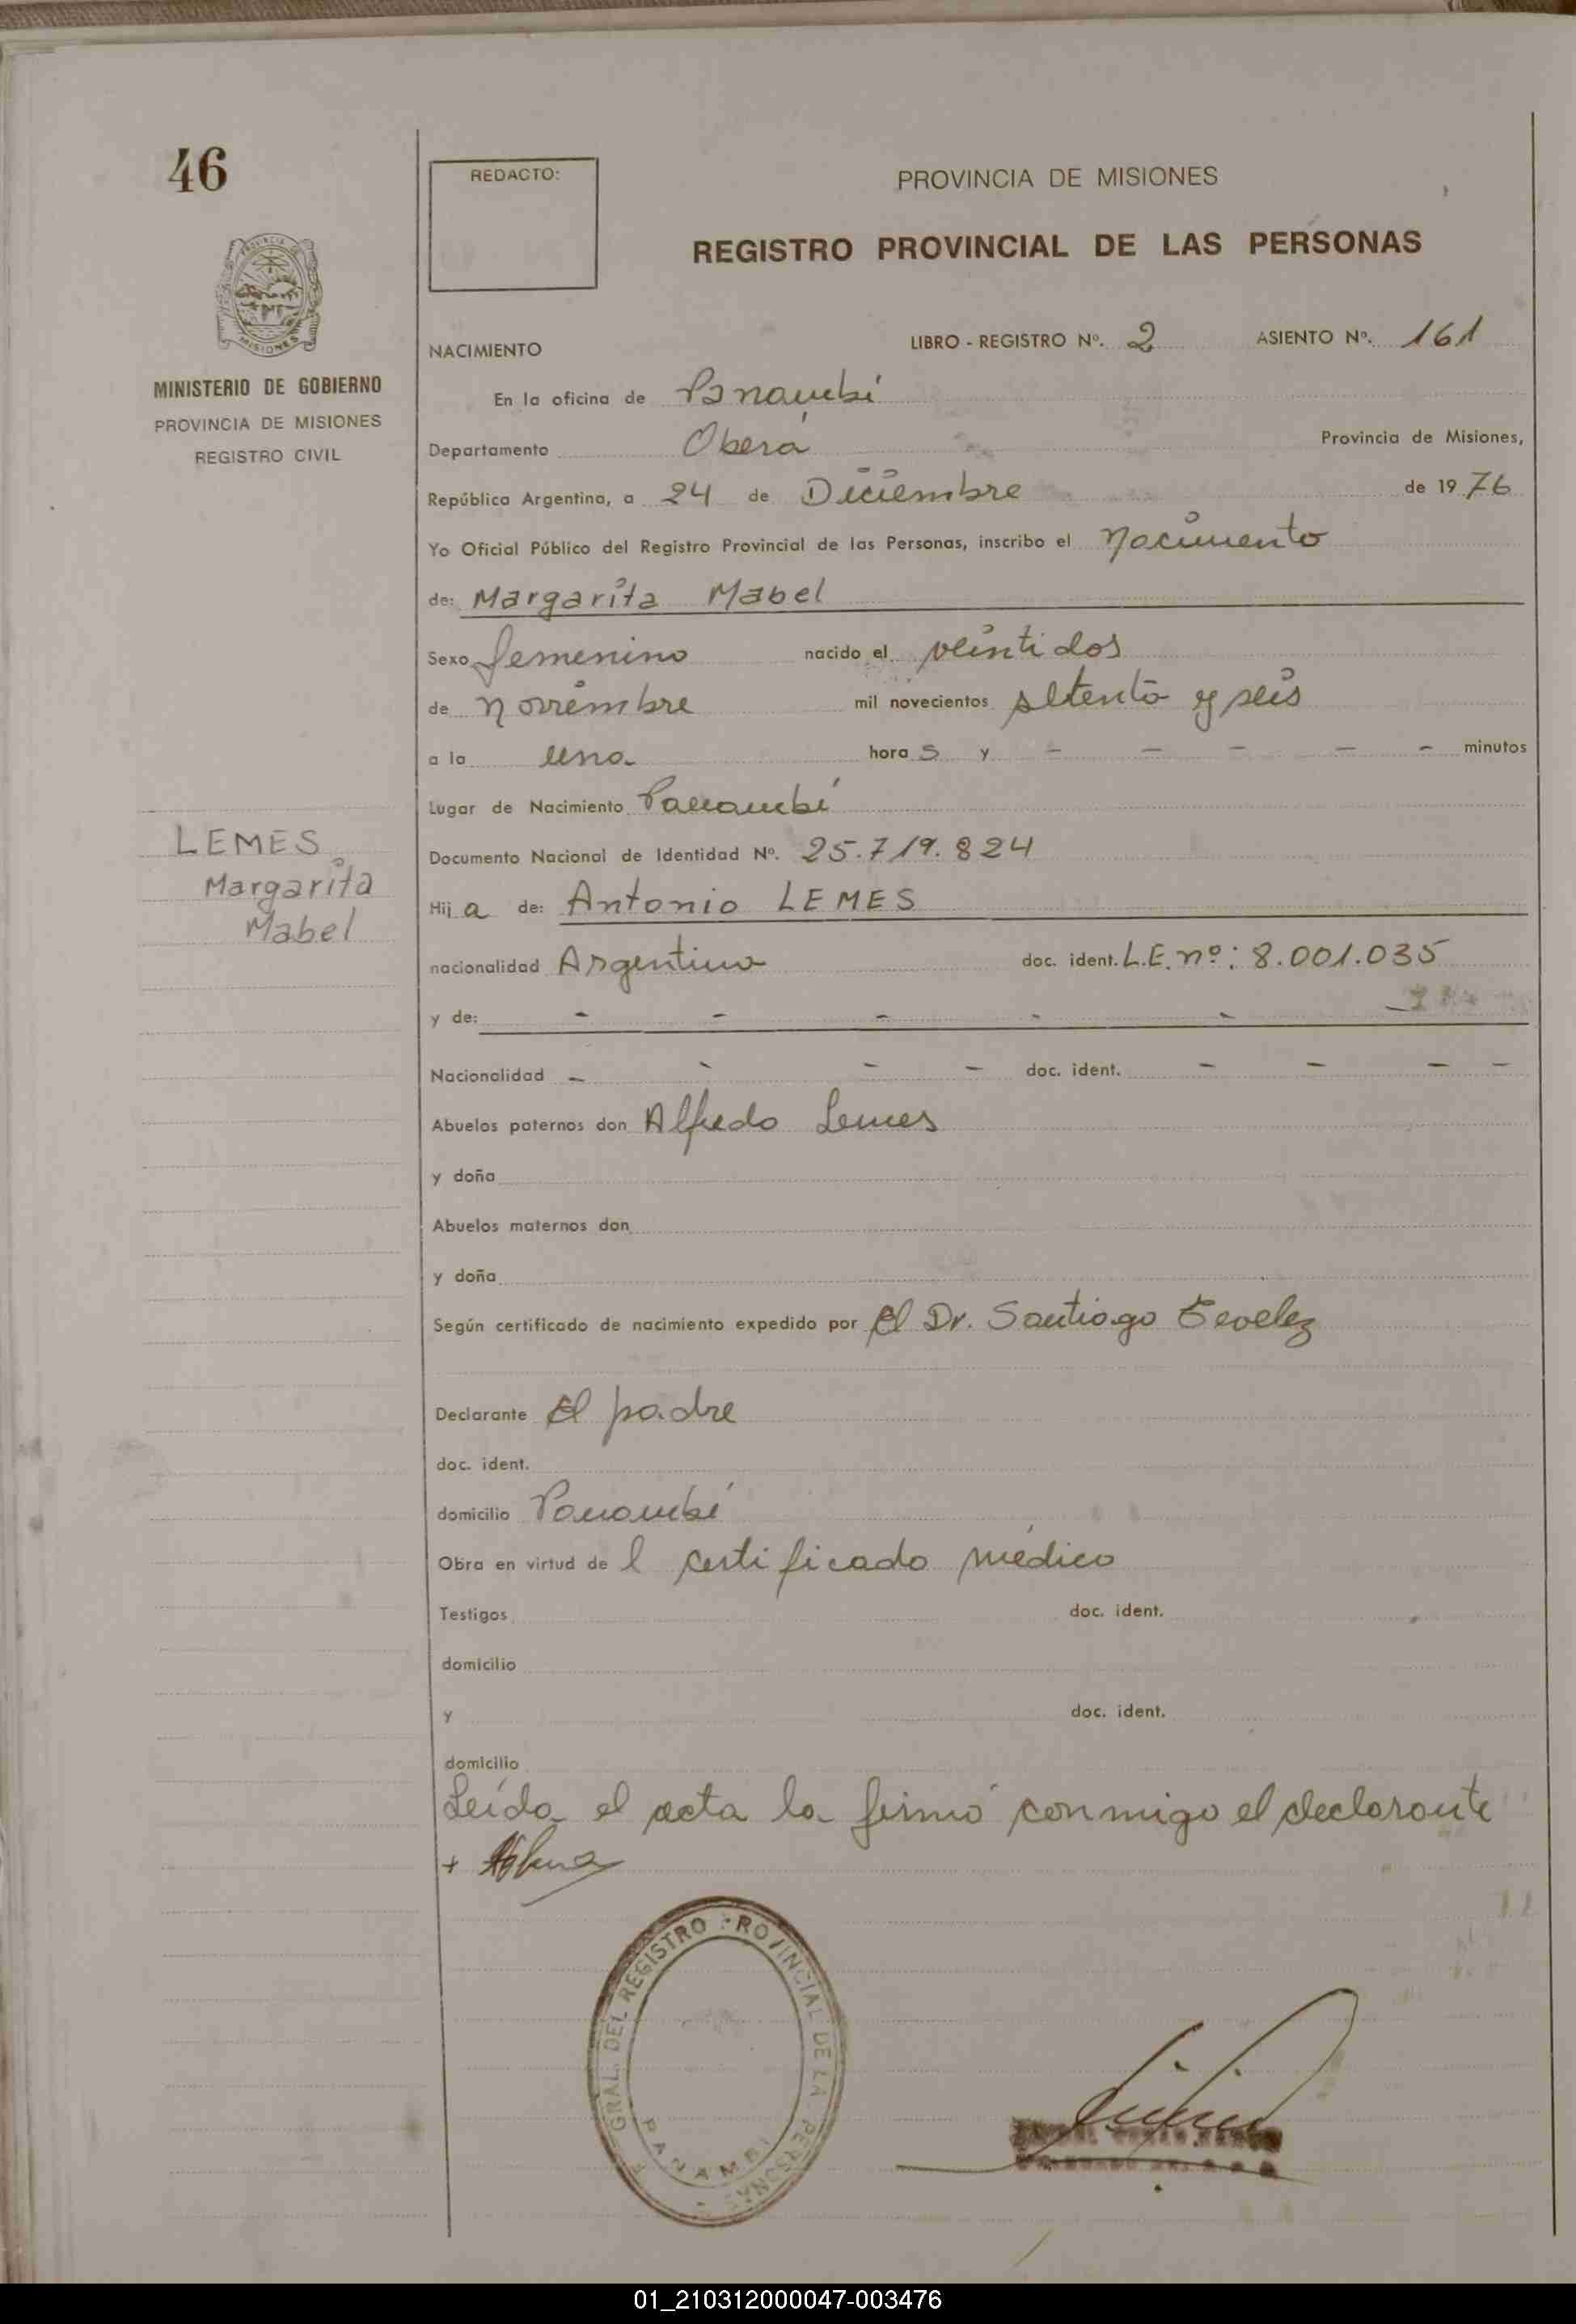 46
REDACTO:
PROVINCIA DE MISIONES
REGISTRO PROVINCIAL DE LAS PERSONAS
PROVINCIA DE
MISIONES
MINISTERIO DE GOBIERNO
PROVINCIA DE MISIONES
REGISTRO CIVIL
NACIMIENTO LIBRO - REGISTRO Nº. 2 ASIENTO Nº. 161
En la oficina de Panambí
Departamento Oberá Provincia de Misiones,
República Argentina, a 24 de Diciembre de 1976
Yo Oficial Público del Registro Provincial de las Personas, inscribo el nacimiento
de: Margarita Mabel
Sexo femenino nacido el veintidos
de noviembre mil novecientos setenta y seis
a la una horas y - - - - - minutos
Lugar de Nacimiento Panambí
LEMES
Margarita
Mabel
Documento Nacional de Identidad Nº. 25.719.824
Hija de: Antonio LEMES
nacionalidad Argentina doc. ident. L.E. nº: 8.001.035
y de: - - - - -
Nacionalidad - - - - doc. ident. - - - -
Abuelos paternos don Alfredo Lemes
y doña
Abuelos maternos don
y doña
Según certificado de nacimiento expedido por el Dr. Santiago
Declarante El padre
doc. ident.
domicilio Panambí
Obra en virtud de l certificado médico
Testigos doc. ident.
domicilio
y doc. ident.
domicilio
Leída el acta la firmó conmigo el declarante
+
GRAL. DEL REGISTRO PROVINCIAL DE LA PERSONAS
PANAMBI
01_210312000047-003476